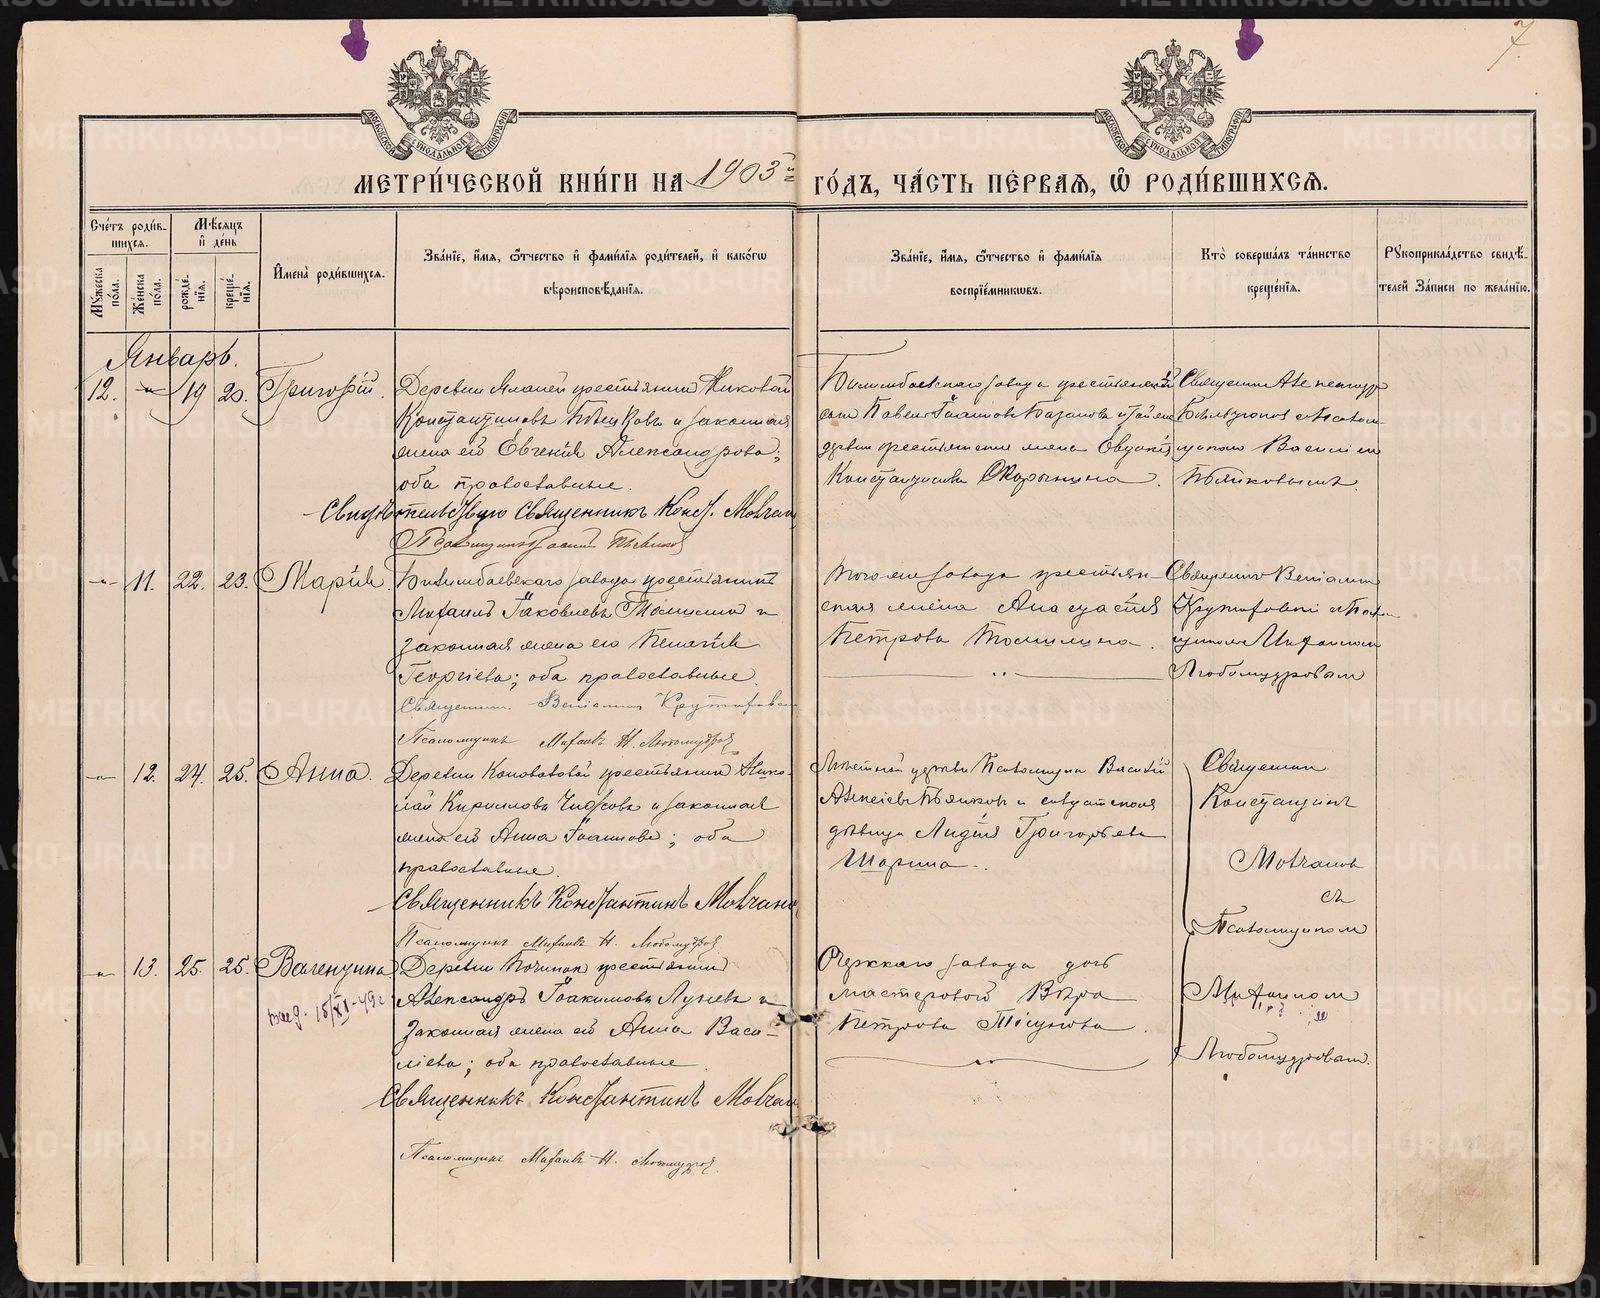 7.
МЕТРИ́ЧЕСКОЙ КНИ́ГИ НА 1903й ГО́ДЪ, ЧА́СТЬ ПЕ́РВАЯ, Ѿ РОДИ́ВШИХСЯ.
Сче́тъ роди́в-
шихся.
Мѣ́сяцъ
и҆ де́нь
Мꙋ́жеска по́ла.
Же́нска по́ла.
рожде́-
нїя.
креще́-
нїя.
И҆мена̀ роди́вшихся.
Зва́нїе, и҆́мя, ѻ҆́тчество и҆ фами́лїя роди́телей, и҆ како́гѡ
вѣроисповѣ́данїя.
Зва́нїе, и҆́мя, ѻ҆́тчество и҆ фами́лїя
воспрїе́мникѡвъ.
Кто̀ соверша́лъ та́инство
креще́нїя.
Рꙋкоприкла́дство свидѣ́-
телей за́писи по жела́нїю.
Январь.
12. -"- 19 20. Григорій.
Деревни крестьянинъ Николай
Константиновъ и законная
жена его Евгенія Александрова;
оба православные.
Свидѣтельствую Священникъ Конст. Молчан
Билимбаевскаго завода крестьянскій
сынъ Павелъ Іоанновъ Базановъ и
крестьянская жена Евдокія
Константинова Скорынина.
Священник Александр
Бѣльтюков с Псалом-
щиком Василием
Пьянковымъ.
-"- 11. 22. 23. Марія.
Билимбаевскаго завода крестьянинъ
Михаилъ Іаковлевъ Томилин и
законная жена его Пелагія
Георгіева; оба православные.
Священник Веніамин Крутиховск
Псаломщикъ Михаилъ Н. Любомудров
Того же завода крестьян-
ская жена Анастасія
Петрова Томилина.
Священник Веніамин
Крутиховскій с Псалом-
щиком Михаилом
Любомудровым
-"- 12. 24. 25. Анна.
Деревни Коноваловой крестьянин Нико-
лай Кирилловъ и законная
жена его Анна Іоаннова; оба
православные.
Священникъ Константинъ Молчано
Псаломщикъ Михаилъ Н. Любомудров
Мѣстной церкви Псаломщик Василій
Алексіевъ Пьянков и
дѣвица Лидія Григорьева
Шарина.
Священник
Константин
Молчанов
съ
Псаломщиком
Михаилом
Любомудровым.
-"- 13. 25. 25. Валентина
15/XI-49г
Деревни Починок крестьянин
Александръ Іоакимовъ Лузевъ и
законная жена его Анна Васи-
ліева; оба православные.
Священникъ Константинъ Молчан
Псаломщикъ Михаилъ Н. Любомудров.
завода дочь
мастероваго Вѣра
Петрова Тіунова.
METRIKI.GASO-URAL.RU